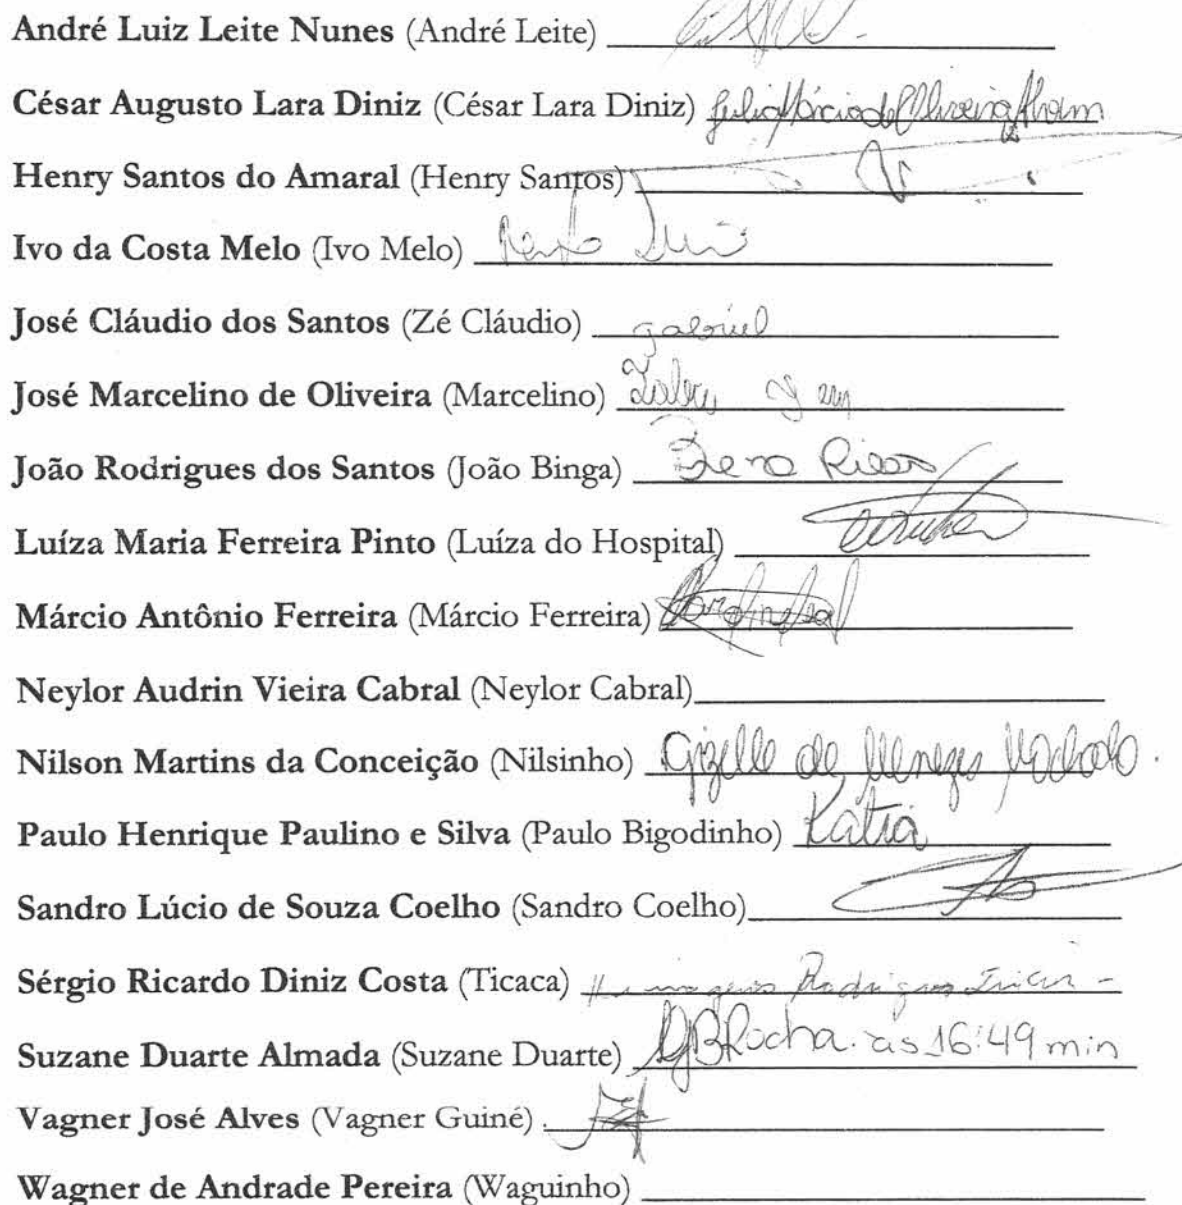 André Luiz Leite Nunes (André Leite)
César Augusto Lara Diniz (César Lara Diniz) de Oliveira
Henry Santos do Amaral (Henry Santos)
Ivo da Costa Melo (Ivo Melo)
José Cláudio dos Santos (Zé Cláudio) gabriel
José Marcelino de Oliveira (Marcelino)
João Rodrigues dos Santos (João Binga)
Luíza Maria Ferreira Pinto (Luíza do Hospital)
Márcio Antônio Ferreira (Márcio Ferreira)
Neylor Audrin Vieira Cabral (Neylor Cabral)
Nilson Martins da Conceição (Nilsinho) Gizelle de Menezes Machado.
Paulo Henrique Paulino e Silva (Paulo Bigodinho) Katia
Sandro Lúcio de Souza Coelho (Sandro Coelho)
Sérgio Ricardo Diniz Costa (Ticaca) Rodrigues
Suzane Duarte Almada (Suzane Duarte) Rocha. às 16:49 min
Vagner José Alves (Vagner Guiné)
Wagner de Andrade Pereira (Waguinho)